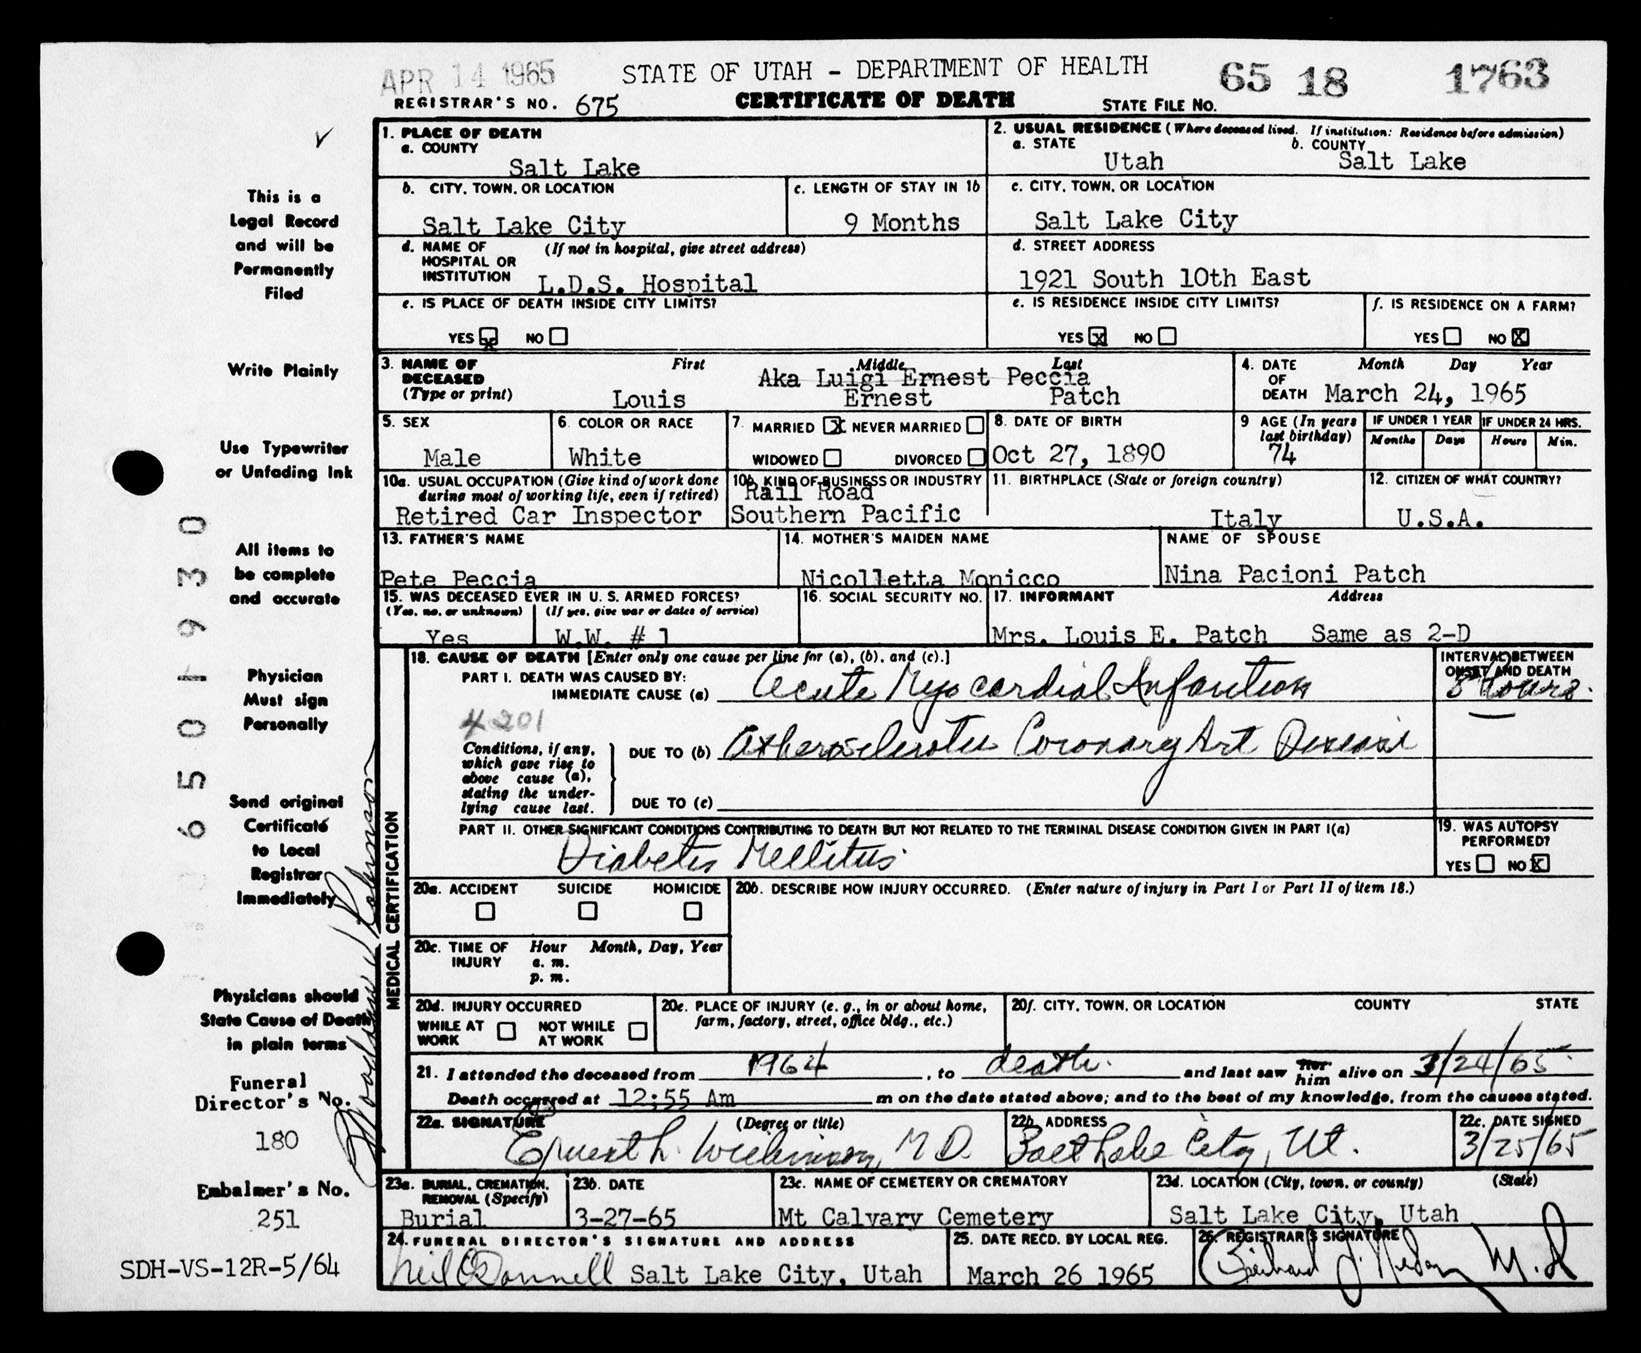 APR 14 1965
STATE OF UTAH - DEPARTMENT OF HEALTH
65 18 1763
REGISTRAR'S NO. 675
CERTIFICATE OF DEATH
STATE FILE NO.
This is a
Legal Record
and will be
Permanently
Filed
Write Plainly
Use Typewriter
or Unfading Ink
All items to
be complete
and accurate
Physician
Must sign
Personally
Send original
Certificate
to Local
Registrar
Immediately
Physicians should
State Cause of Death
in plain terms
Funeral
Director's No.
180
Embalmer's No.
251
SDH-VS-12R-5/64
6501930
Robinson
1. PLACE OF DEATH
a. COUNTY
Salt Lake
2. USUAL RESIDENCE (Where deceased lived. If institution: Residence before admission)
a. STATE b. COUNTY
Utah Salt Lake
b. CITY, TOWN, OR LOCATION
Salt Lake City
c. LENGTH OF STAY IN 1b
9 Months
c. CITY, TOWN, OR LOCATION
Salt Lake City
d. NAME OF (If not in hospital, give street address)
HOSPITAL OR
INSTITUTION L.D.S. Hospital
d. STREET ADDRESS
1921 South 10th East
e. IS PLACE OF DEATH INSIDE CITY LIMITS?
YES x NO
e. IS RESIDENCE INSIDE CITY LIMITS?
YES x NO
f. IS RESIDENCE ON A FARM?
YES NO X
3. NAME OF First Middle Last
DECEASED Aka Luigi Ernest Peccia
(Type or print) Louis Ernest Patch
4. DATE Month Day Year
OF
DEATH March 24, 1965
5. SEX
Male
6. COLOR OR RACE
White
7. MARRIED X NEVER MARRIED
WIDOWED DIVORCED
8. DATE OF BIRTH
Oct 27, 1890
9 AGE (In years
last birthday)
74
IF UNDER 1 YEAR
Months Days
IF UNDER 24 HRS.
Hours Min.
10a. USUAL OCCUPATION (Give kind of work done
during most of working life, even if retired)
Retired Car Inspector
10b. KIND OF BUSINESS OR INDUSTRY
Rail Road
Southern Pacific
11. BIRTHPLACE (State or foreign country)
Italy
12. CITIZEN OF WHAT COUNTRY?
U.S.A.
13. FATHER'S NAME
Pete Peccia
14. MOTHER'S MAIDEN NAME
Nicolletta Monicco
NAME OF SPOUSE
Nina Pacioni Patch
15. WAS DECEASED EVER IN U. S. ARMED FORCES?
(Yes, no, or unknown) (If yes, give war or dates of service)
Yes W.W. # 1
16. SOCIAL SECURITY NO.
17. INFORMANT Address
Mrs. Louis E. Patch Same as 2-D
MEDICAL CERTIFICATION
18. CAUSE OF DEATH [Enter only one cause per line for (a), (b), and (c).]
INTERVAL BETWEEN
ONSET AND DEATH
PART I. DEATH WAS CAUSED BY:
IMMEDIATE CAUSE (a) Acute Myocardial Infarction 8 Hours.
4201
Conditions, if any,
which gave rise to
above cause (a),
stating the under-
lying cause last.
DUE TO (b) Atherosclerotic Coronary Art Disease
DUE TO (c)
PART II. OTHER SIGNIFICANT CONDITIONS CONTRIBUTING TO DEATH BUT NOT RELATED TO THE TERMINAL DISEASE CONDITION GIVEN IN PART I(a)
Diabetes Mellitus
19. WAS AUTOPSY
PERFORMED?
YES NO X
20a. ACCIDENT SUICIDE HOMICIDE
20b. DESCRIBE HOW INJURY OCCURRED. (Enter nature of injury in Part I or Part II of item 18.)
20c. TIME OF Hour Month, Day, Year
INJURY a. m.
p. m.
20d. INJURY OCCURRED
WHILE AT NOT WHILE
WORK AT WORK
20e. PLACE OF INJURY (e. g., in or about home,
farm, factory, street, office bldg., etc.)
20f. CITY, TOWN, OR LOCATION COUNTY STATE
21. I attended the deceased from 1964, to death. and last saw her him alive on 3/24/65
Death occurred at 12:55 Am m on the date stated above; and to the best of my knowledge, from the causes stated.
22a. SIGNATURE (Degree or title)
Ernest L. Wilkinson, M D.
22b. ADDRESS
Salt Lake City, Ut.
22c. DATE SIGNED
3/25/65
23a. BURIAL, CREMATION,
REMOVAL (Specify)
Burial
23b. DATE
3-27-65
23c. NAME OF CEMETERY OR CREMATORY
Mt Calvary Cemetery
23d. LOCATION (City, town, or county) (State)
Salt Lake City, Utah
24. FUNERAL DIRECTOR'S SIGNATURE AND ADDRESS
Neil O'Donnell Salt Lake City, Utah
25. DATE RECD. BY LOCAL REG.
March 26 1965
26. REGISTRAR'S SIGNATURE
M.D